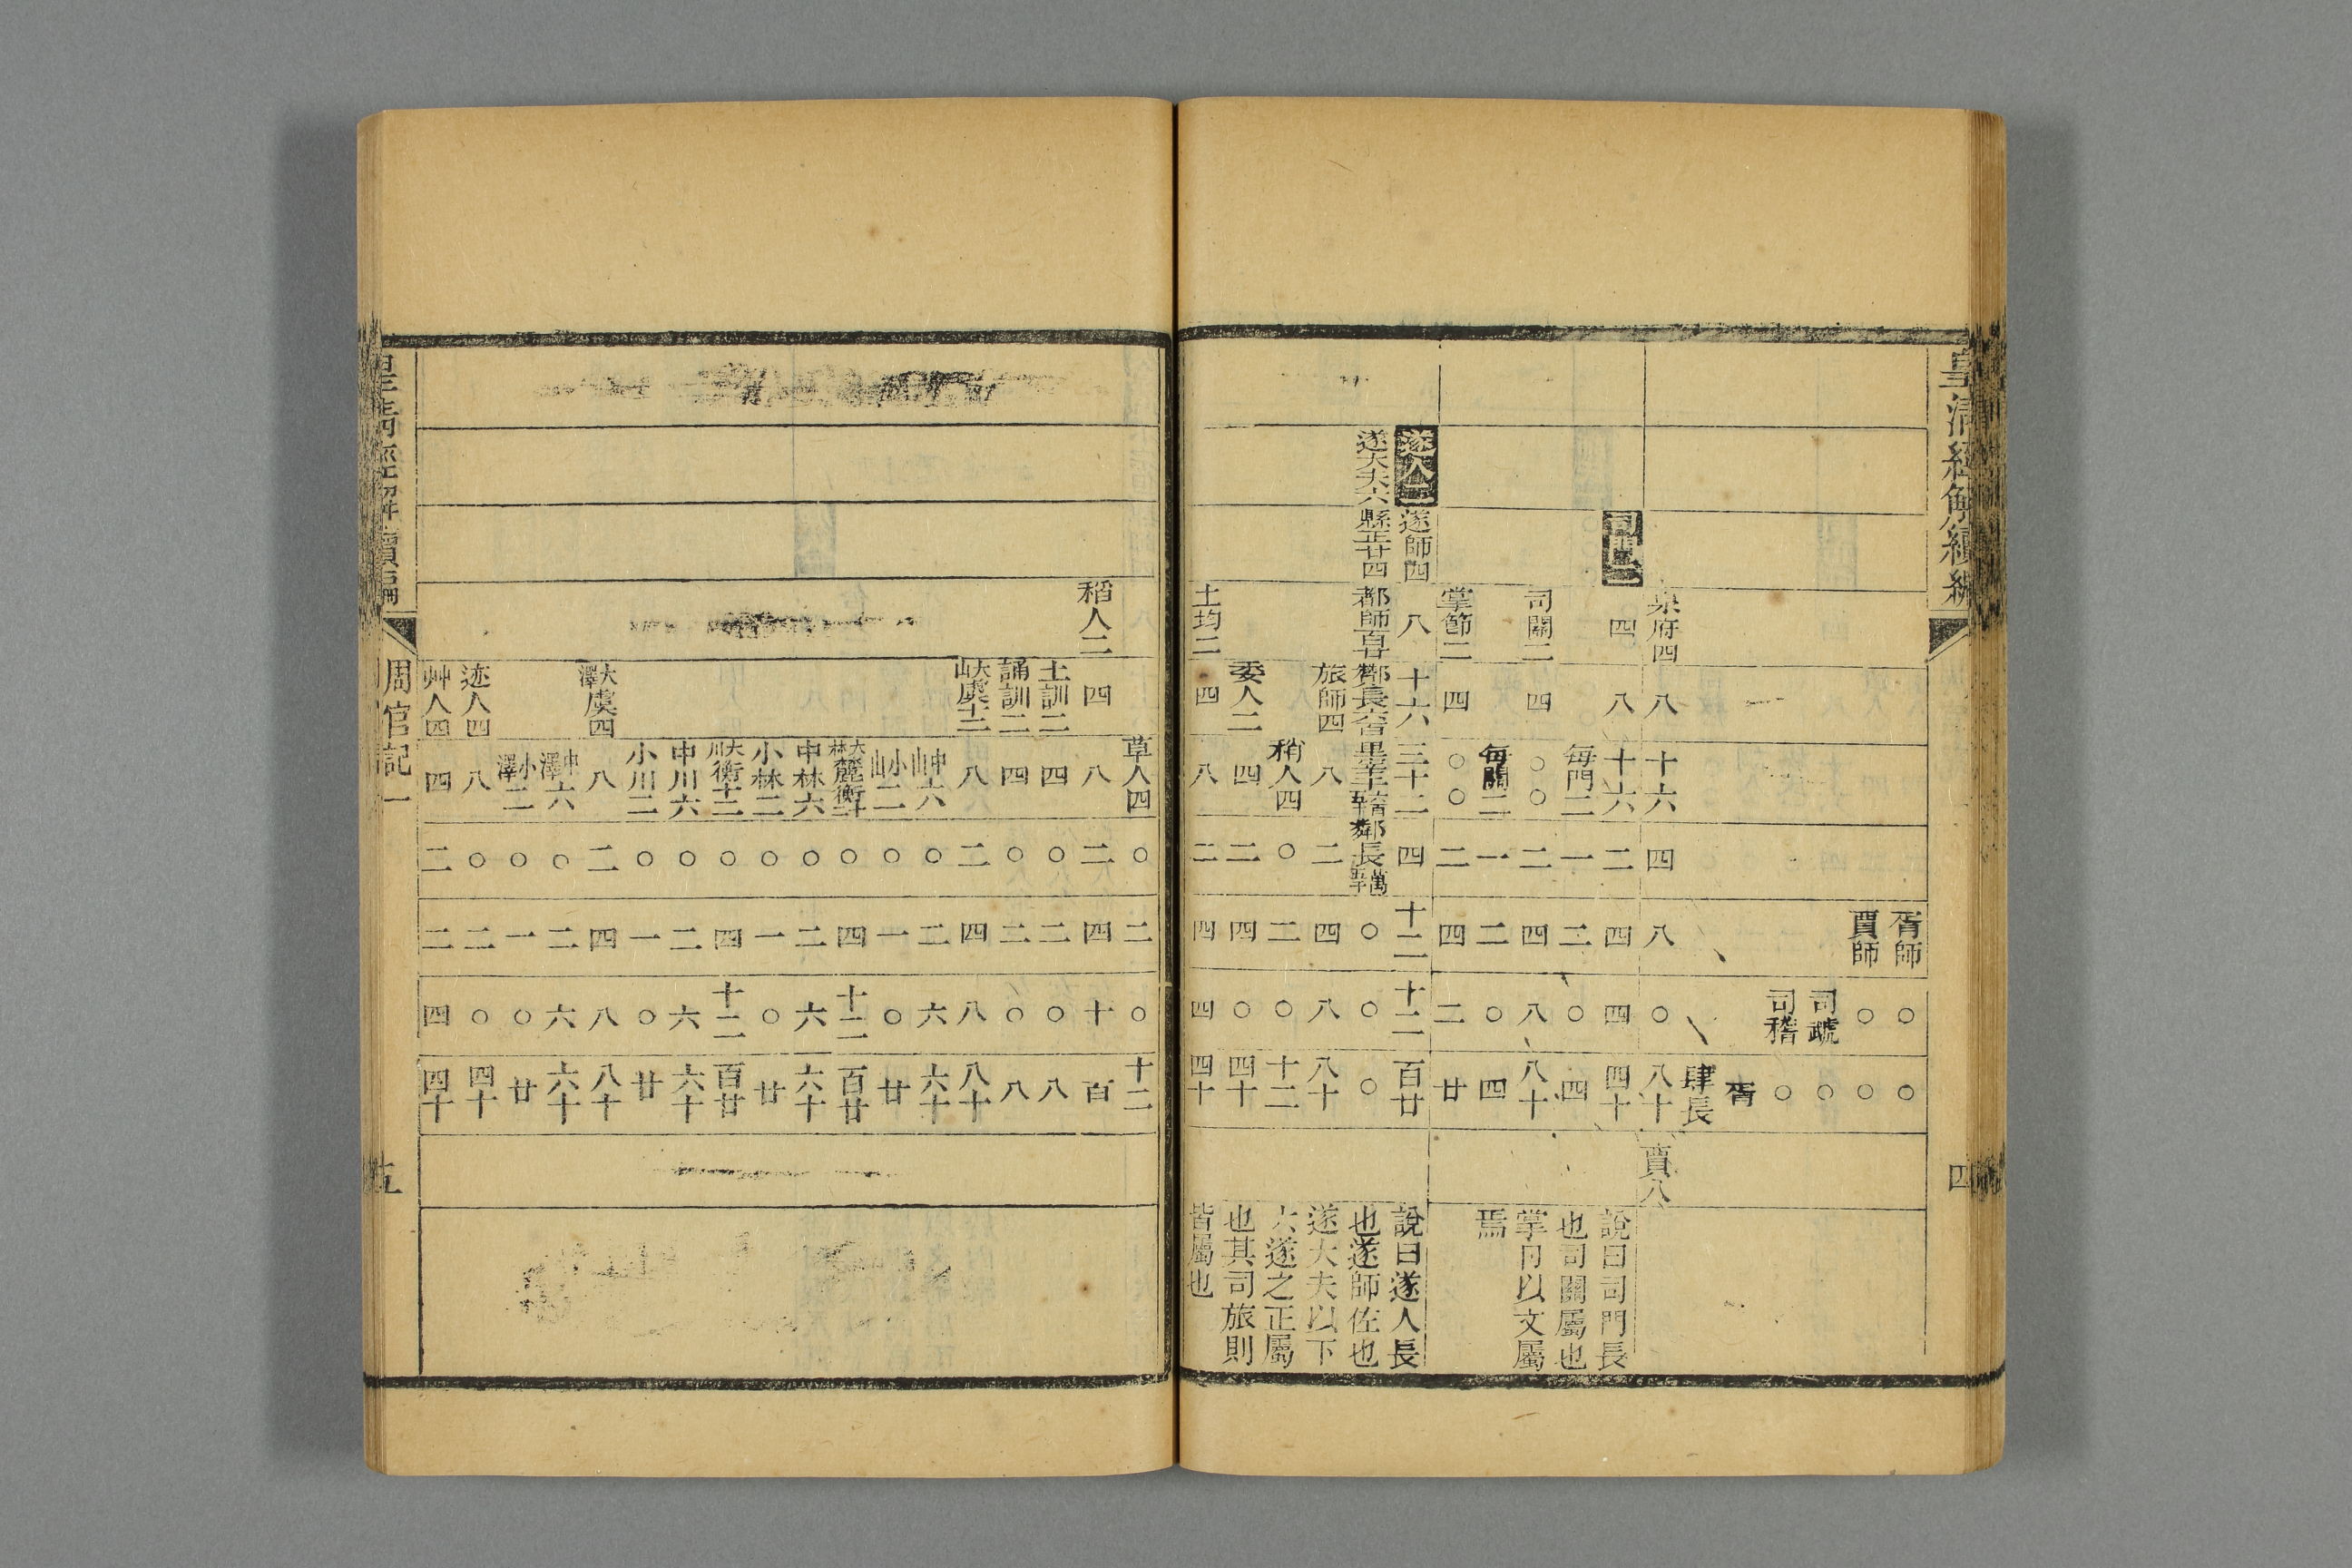 皇清經解續編 四
胥師 ○ ○
賈師 ○ ○
司虣 ○
司稽 ○
胥
肆長
泉府四 八 十六 四 八 ○ 八十 賈八
司門二 四 八 十六 二 四 四 四十 說曰司門長
每門二 一 二 ○ 四 也司關屬也
司關二 四 ○○ 二 四 八 八十 掌卪以文屬
每關二 一 二 ○ 四 焉
掌節二 四 ○○ 二 四 二 廿
遂人二 遂師四 八 十六 三十二 四 十二 十二 百廿 說曰遂人長
遂大夫六 縣正廿四 鄙師百廿 酇長六百 里宰三千 鄰長萬五千 ○ ○ ○ 也遂師佐也
旅師四 八 二 四 八 八十 遂大夫以下
稍人四 ○ 二 ○ 十二 六遂之正屬
委人二 四 二 四 ○ 四十 也其司旅則
土均二 四 八 二 四 四 四十 皆屬也
草人四 ○ 二 ○ 十二
稻人二 四 八 二 四 十 百
土訓二 四 ○ 二 ○ 八
誦訓二 四 ○ 二 ○ 八
大山虞十二 八 二 四 八 八十
中山六 ○ 二 六 六十
小山二 ○ 一 ○ 廿
大林麓衡十二 ○ 四 十二 百廿
中林六 ○ 二 六 六十
小林二 ○ 一 ○ 廿
大川衡十二 ○ 四 十二 百廿
中川六 ○ 二 六 六十
小川二 ○ 一 ○ 廿
大澤虞四 八 二 四 八 八十
中澤六 ○ 二 六 六十
小澤二 ○ 一 ○ 廿
迹人四 八 ○ 二 ○ 四十
丱人四 四 二 二 四 四十
皇清經解續編 周官記一 五